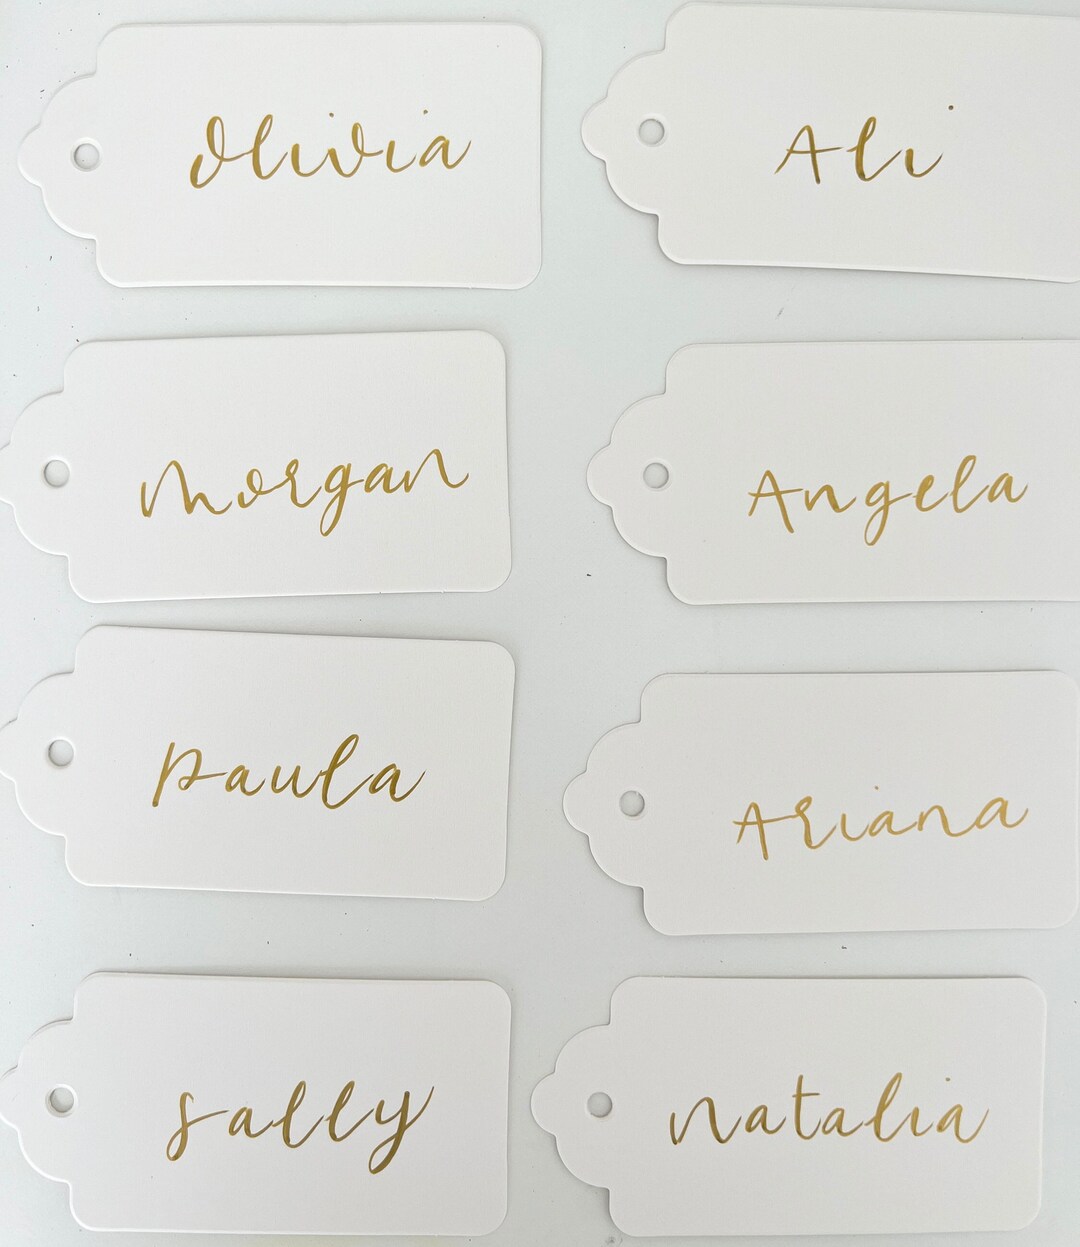 Olivia
Ali
Morgan
Angela
Paula
Ariana
Sally
Natalia